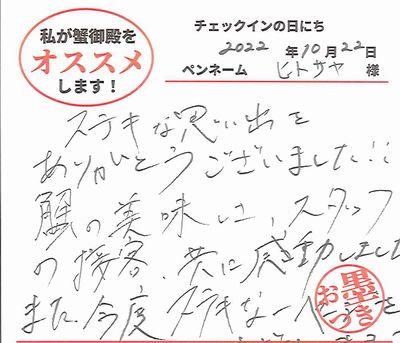 私が蟹御殿を
オススメ
します！
チェックインの日にち
2022 年 10 月 22 日
ペンネーム ヒトサヤ 様
ステキな思い出を
ありがとうございました!!
蟹の美味しさ、スタッフ
の接客、共に感動しました
また、今度ステキな一ページを
墨
おつき